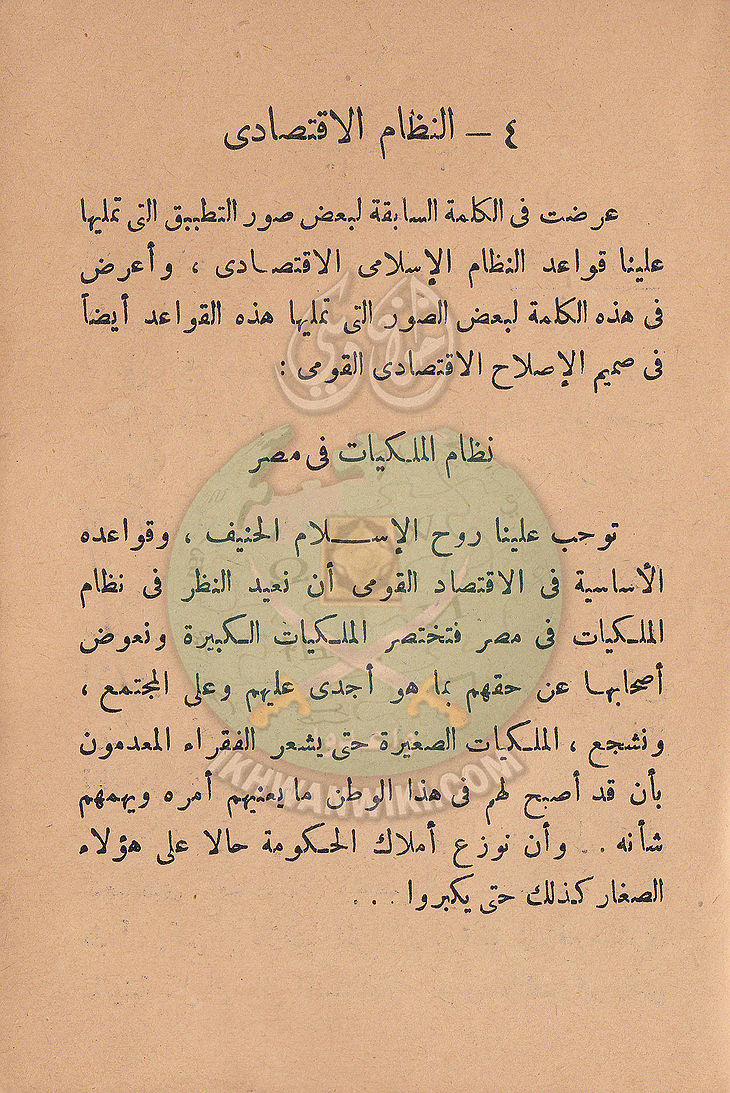 ٤ – النظام الاقتصادى
عرضت فى الكلمة السابقة لبعض صور التطبيق التى تمليها
علينا قواعد النظام الإسلامى الاقتصادى ، وأعرض
فى هذه الكلمة لبعض الصور التى تمليها هذه القواعد أيضاً
فى صميم الإصلاح الاقتصادى القومى :
نظام الملكيات فى مصر
توجب علينا روح الإسلام الحنيف ، وقواعده
الأساسية فى الاقتصاد القومى أن نعيد النظر فى نظام
الملكيات فى مصر فتختصر الملكيات الكبيرة ونعوض
أصحابها عن حقهم بما هو أجدى عليهم وعلى المجتمع ،
ونشجع ، الملكيات الصغيرة حتى يشعر الفقراء المعدمون
بأن قد أصبح لهم فى هذا الوطن ما يعنيهم أمره ويهمهم
شأنه . . وأن نوزع أملاك الحكومة حالا على هؤلاء
الصغار كذلك حتى يكبروا . . .
IKHWANWIKI.COM